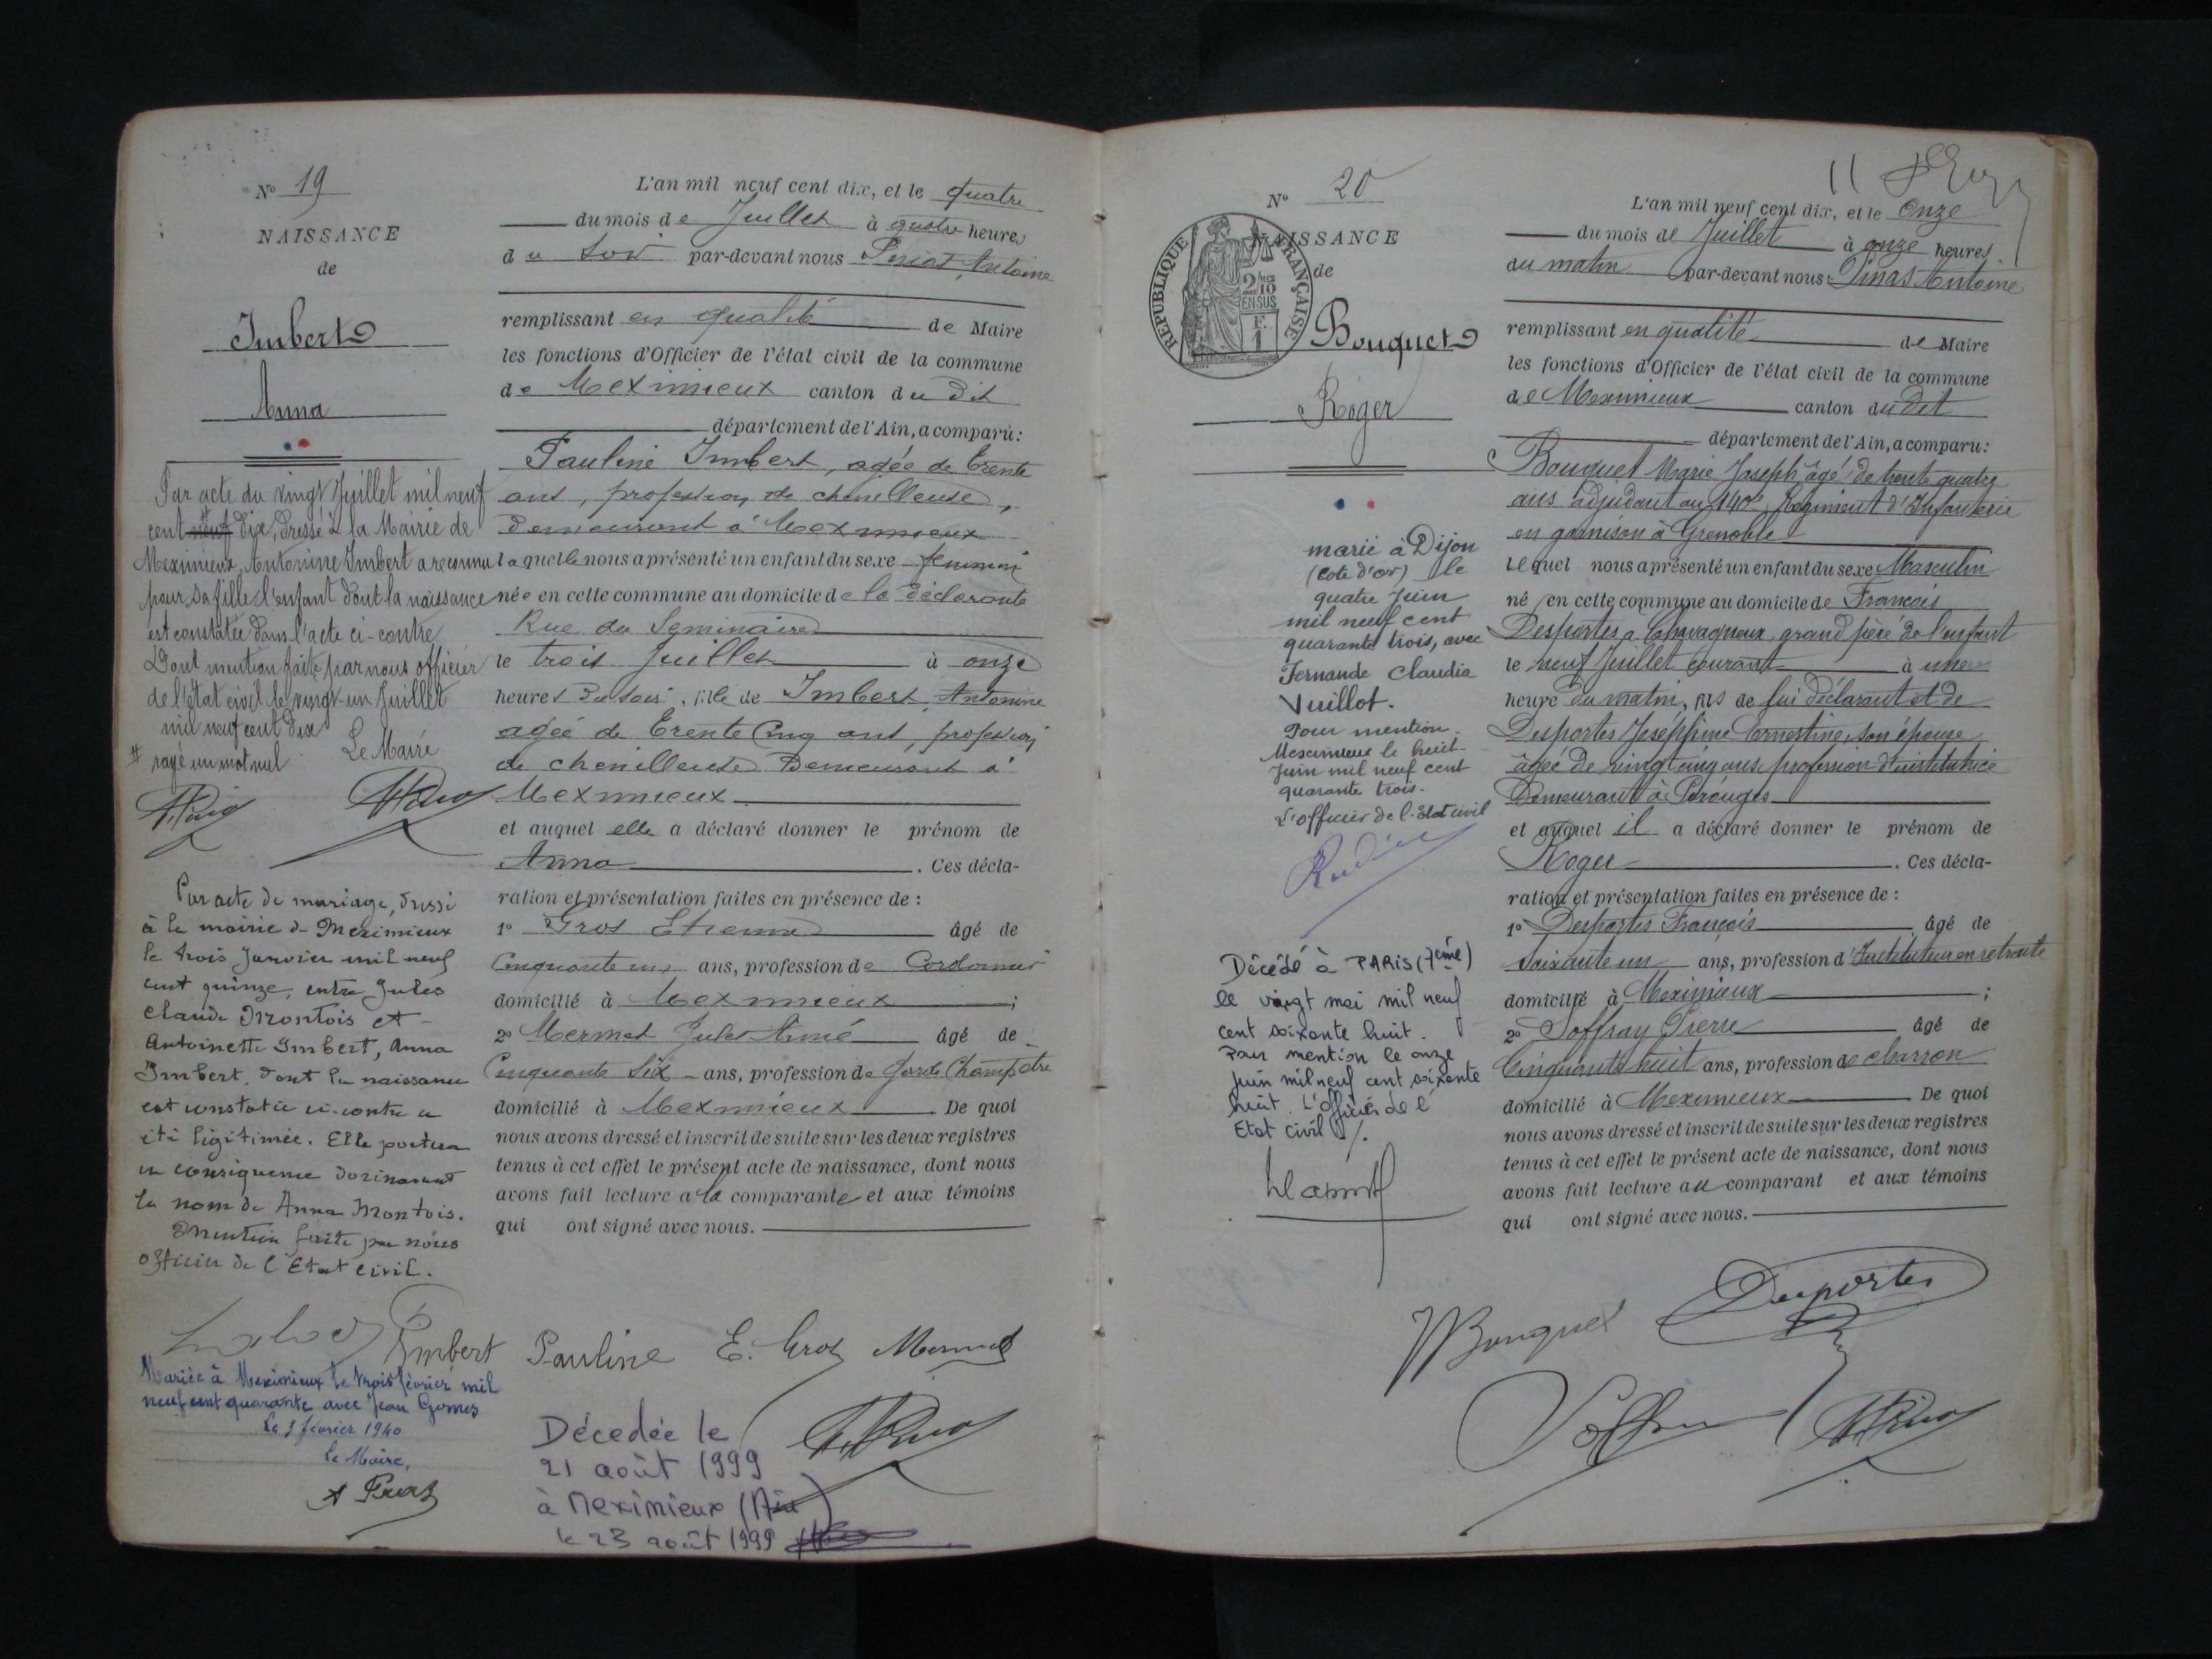 N° 19
NAISSANCE
de
Imbert
Anna
Par acte du vingt Juillet mil neuf
cent neuf dix, dressé à la Mairie de
Meximieux, Antonine Imbert a reconnu
pour sa fille l'enfant dont la naissance
est constatée dans l'acte ci-contre
Dont mention faite par nous officier
de l'état civil le vingt-un Juillet
mil neuf cent dix
# rayé un mot nul Le Maire
Par acte de mariage, dressé
à la mairie de Meximieux
le trois Janvier mil neuf
cent quinze, entre Jules
Claude Montois et
Antoinette Imbert, Anna
Imbert, dont la naissance
est constatée ci-contre a
été légitimée. Elle portera
en conséquence dorénavant
le nom de Anna Montois.
Mention faite par nous
officier de l'Etat civil.
Mariée à Meximieux le trois février mil
neuf cent quarante avec Jean Gomes
Le 3 février 1940
Le Maire,
L'an mil neuf cent dix, et le quatre
du mois de Juillet à quatre heures
du soir par-devant nous Antoine
remplissant en qualité de Maire
les fonctions d'Officier de l'état civil de la commune
de Meximieux canton du dit
département de l'Ain, a comparu:
Pauline Imbert, agée de trente
ans, profession de chenilleuse,
demeurant à Meximieux
laquelle nous a présenté un enfant du sexe féminin
née en cette commune au domicile de la déclarante
Rue du Seminaire
le trois Juillet à onze
heures du soir, fille de Imbert Antonine
agée de trente cinq ans, profession
de chenilleuse demeurant à
Meximieux
et auquel elle a déclaré donner le prénom de
Anna . Ces décla-
ration et présentation faites en présence de :
1° Gros Etienne âgé de
Cinquante un ans, profession de Cordonnier
domicilié à Meximieux ;
2° Mermet Jules Aimé âgé de
Cinquante Six ans, profession de Garde Champêtre
domicilié à Meximieux . De quoi
nous avons dressé et inscrit de suite sur les deux registres
tenus à cet effet le présent acte de naissance, dont nous
avons fait lecture a la comparante et aux témoins
qui ont signé avec nous.
Imbert Pauline E. Gros Mermet
Décedée le
21 août 1999
à Meximieux (Ain)
le 23 août 1999
N° 20
NAISSANCE
de
REPUBLIQUE FRANÇAISE
2/10
EN SUS
F.
1
Bouquet
Roger
marié à Dijon
(Cote d'or) le
quatre Juin
mil neuf cent
quarante trois, avec
Fernande Claudia
Vuillot.
Pour mention
Meximieux le huit
Juin mil neuf cent
quarante trois.
L'officier de l'Etat civil
Décédé à PARIS (7ème)
le vingt mai mil neuf
cent soixante huit.
Pour mention le onze
juin mil neuf cent soixante
huit. L'officier de l'
Etat civil
11
L'an mil neuf cent dix, et le Onze
du mois de Juillet à onze heures
du matin par-devant nous Antoine
remplissant en qualité de Maire
les fonctions d'Officier de l'état civil de la commune
de Meximieux canton du dit
département de l'Ain, a comparu:
Bouquet Marie Joseph âgé de trente quatre
ans adjudant au 140e Régiment d'Infanterie
en garnison à Grenoble
Lequel nous a présenté un enfant du sexe Masculin
né en cette commune au domicile de François
Desportes a Chavagneux, grand père de l'enfant
le neuf Juillet courant à une
heure du matin, fils de lui déclarant et de
Desportes Joséphine Ernestine, son épouse
âgée de vingt cinq ans, profession d'institutrice
Demeurant à Perouges
et auquel il a déclaré donner le prénom de
Roger . Ces décla-
ration et présentation faites en présence de :
1° Desportes François âgé de
soixante un ans, profession d'Instituteur en retraite
domicilié à Meximieux ;
2° Joffray Pierre âgé de
Cinquante huit ans, profession de charron
domicilié à Meximieux . De quoi
nous avons dressé et inscrit de suite sur les deux registres
tenus à cet effet le présent acte de naissance, dont nous
avons fait lecture au comparant et aux témoins
qui ont signé avec nous.
Bouquet Desportes